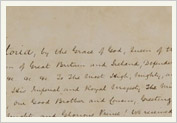 toria, by the Grace of God, Queen of th
m of Great Britain and Ireland, Defende
To The Most High, Mighty, a
His Imperial and Royal Majesty, The
our Good Brother and Cousin, Greeting
and Glorious Prince! We received